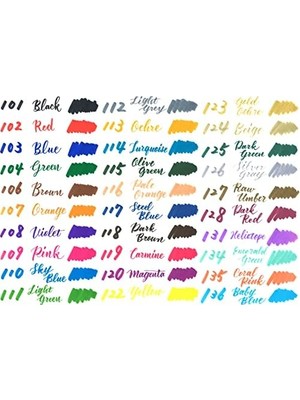 101 Black
102 Red
103 Blue
104 Green
106 Brown
107 Orange
108 Violet
109 Pink
110 Sky
Blue
111 Light
Green
112 Light
Grey
113 Ochre
114 Turquoise
115 Olive
Green
116 Pale
Orange
117 Steel
Blue
118 Dark
Brown
119 Carmine
120 Magenta
122 Yellow
123 Gold
Ochre
124 Beige
125 Dark
Green
126 Silver
Grey
127 Raw
Umber
128 Dark
Red
131 Heliotope
134 Emerald
Green
135 Coral
Pink
136 Baby
Blue